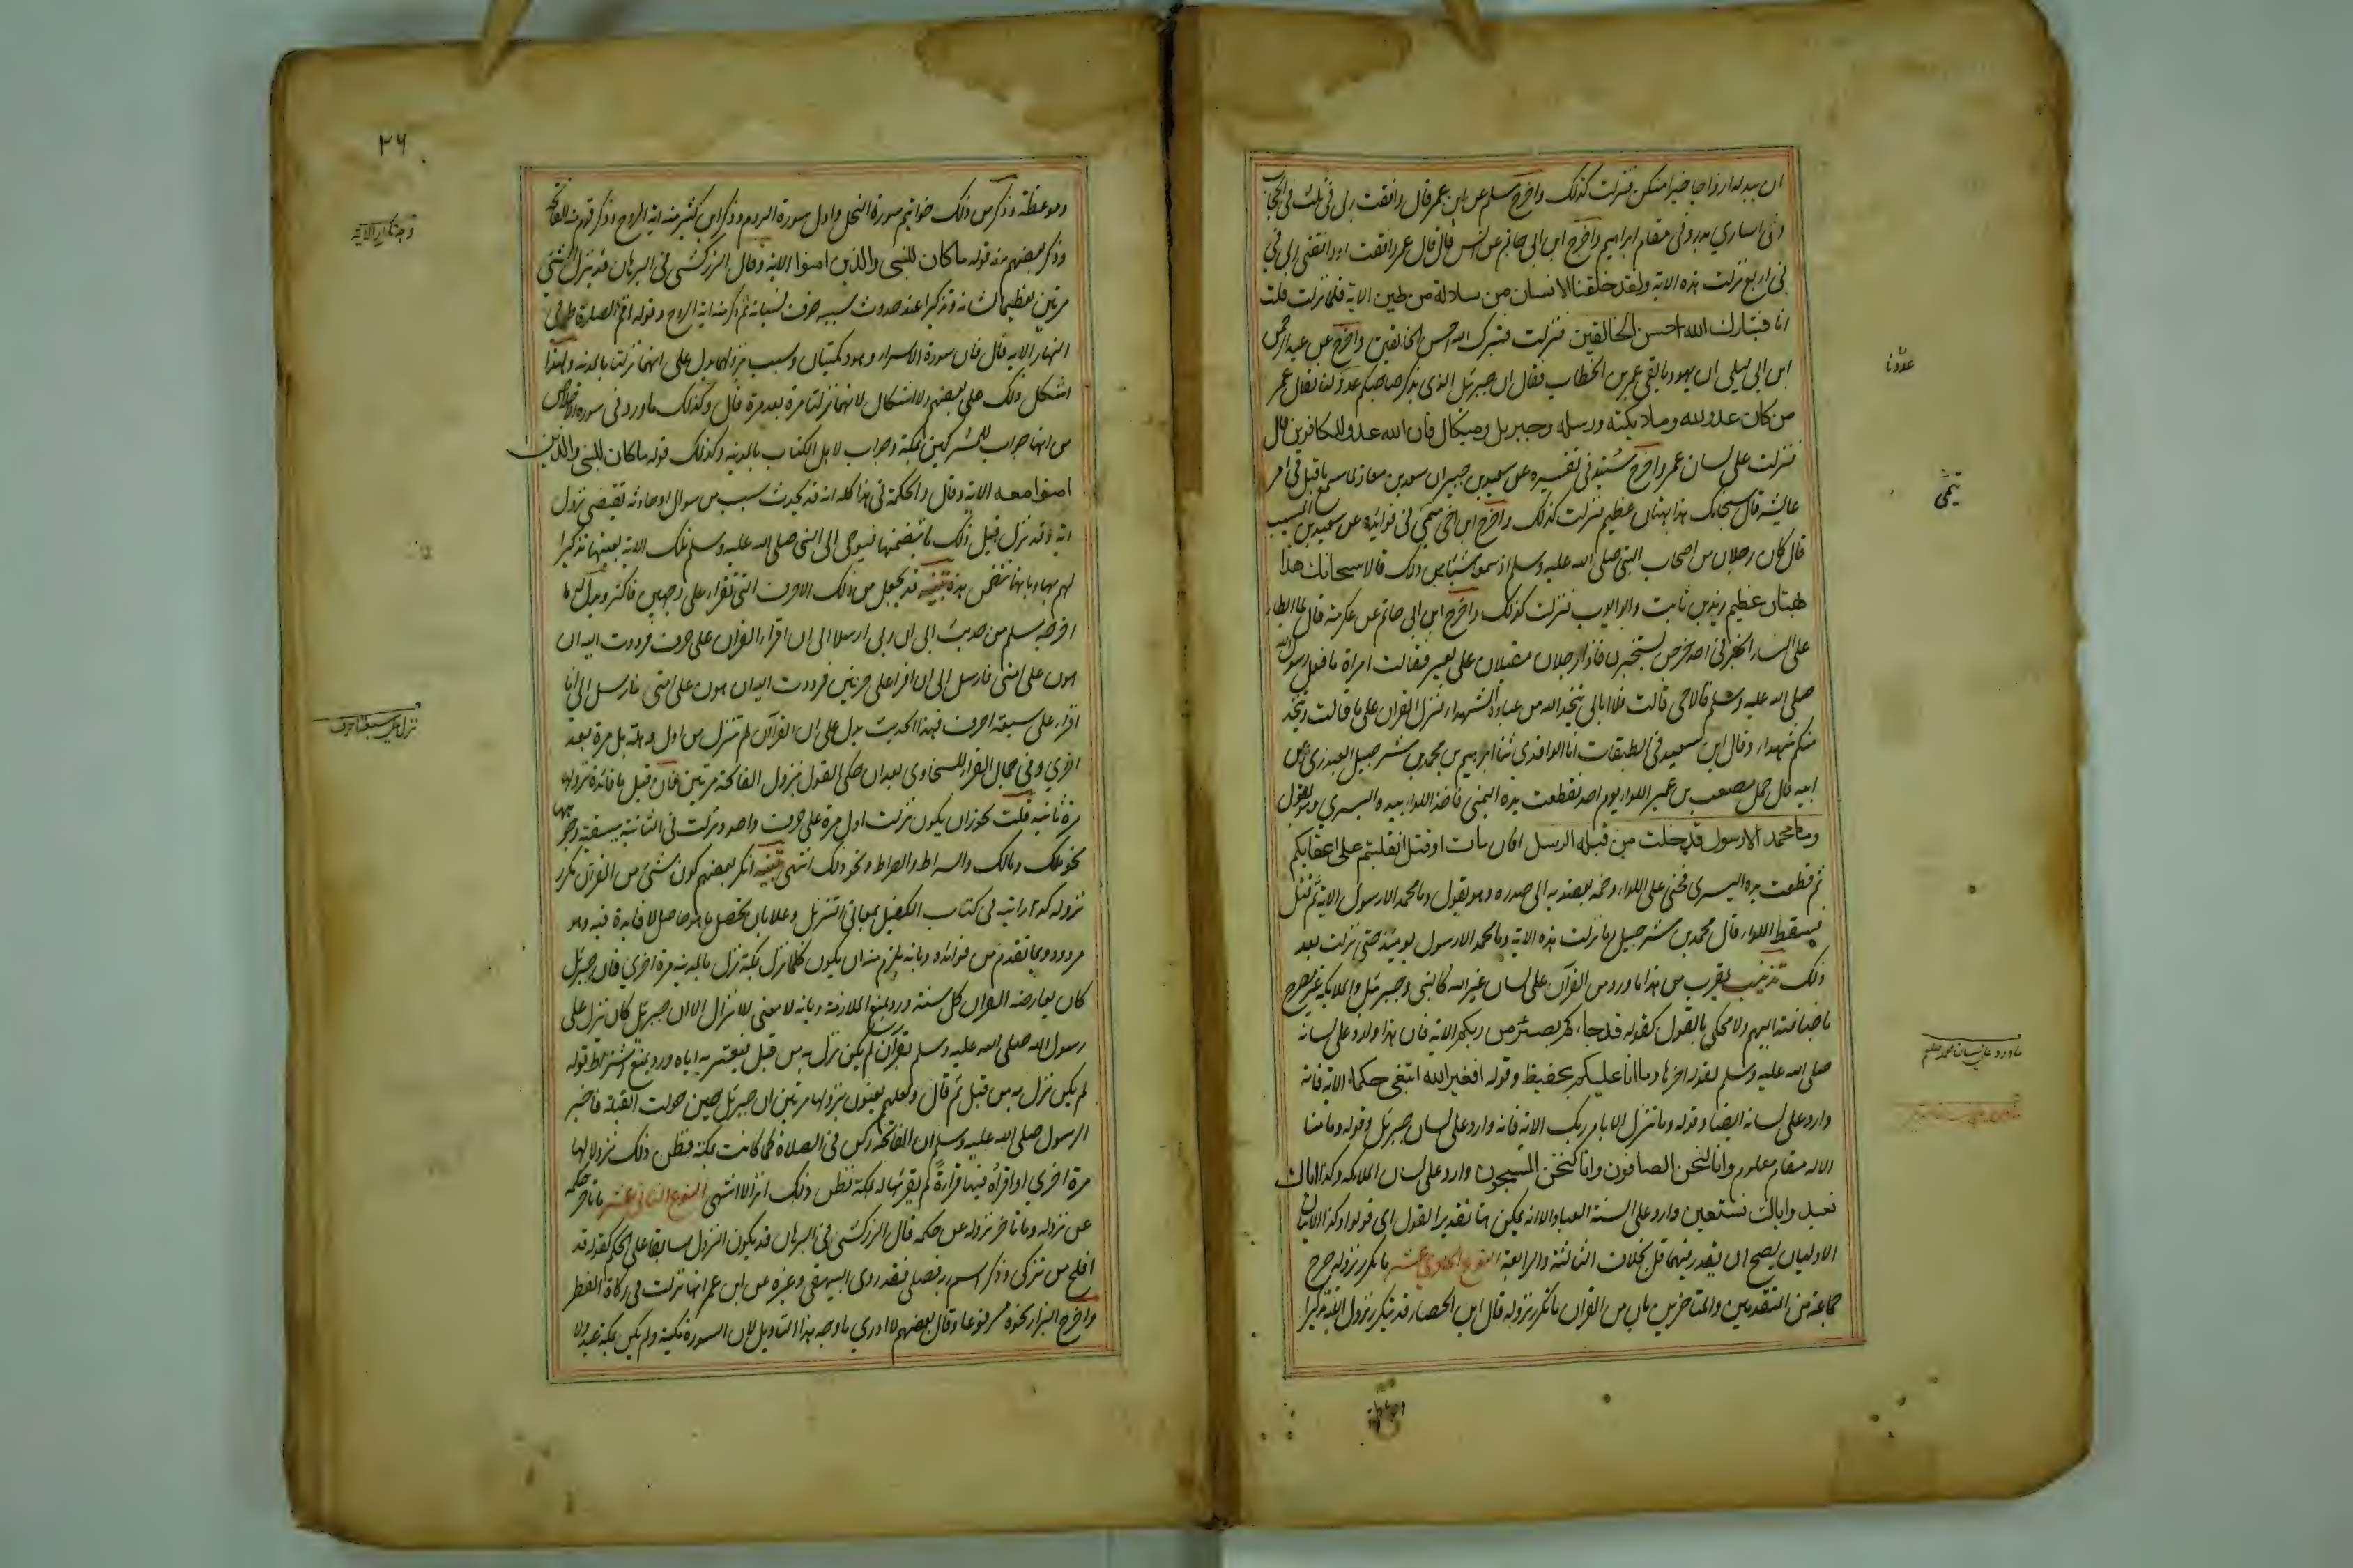 ان يبدله ازواجا خيرا منكن فنزلت كذلك واخرج مسلم عن ابن عمر قال وافقت ربى فى ثلث فى الحجاب
وفى اسارى بدر وفى مقام ابراهيم واخرج ابن ابى حاتم عن انس قال قال عمر وافقت او وافقنى ربى فى
فى اربع نزلت هذه الاية ولقد خلقنا الانسان من سلالة من طين الاية فلما نزلت قلت
انا فتبارك الله احسن الخالقين فنزلت فتبرك الله احسن الخالقين واخرج عن عبد الرحمن
ابن ابى ليلى ان يهوديا لقى عمر بن الخطاب فقال ان جبرئل الذى يذكر صاحبكم عدو لنا فقال عمر
من كان عدو لله وملائكته ورسله وجبريل وميكال فان الله عدو للكافرين قال
فنزلت على لسان عمر واخرج سنيد فى تفسيره عن سعيد بن جبير ان سعد بن معاذ لما سمع ما قيل فى امر
عايشه قال سبحانك هذا بهتان عظيم فنزلت كذلك واخرج ابن اخى ميمى فى فوائده عن سعيد بن المسيب
قال كان رجلان من اصحاب النبى صلى الله عليه وسلم اذ سمعا شيئا من ذلك قالا سبحانك هذا
بهتان عظيم زيد بن ثابت وابو ايوب فنزلت كذلك واخرج ابن ابى حاتم عن عكرمة قال لما ابطاء
على النساء الخبر فى احد خرجن يستخبرن فاذا رجلان مقبلان على بعير فقالت امراة ما فعل رسول الله
صلى الله عليه وسلم قالا حى قالت فلا ابالى يتخذ الله من عباده الشهداء فنزل القران على ما قالت ويتخذ
منكم شهداء وقال ابن سعيد فى الطبقات انا الواقدى ثنا ابراهيم بن محمد بن شرحبيل العبدرى عن
ابيه قال حمل مصعب بن عمير اللواء يوم احد فقطعت يده اليمنى فاخذ اللواء بيده اليسرى وهو يقول
وما محمد الا رسول قد خلت من قبله الرسل افان مات او قتل انقلبتم على اعقابكم
ثم قطعت يده اليسرى فحنى على اللواء وضمه بعضديه الى صدره وهو يقول وما محمد الا رسول الاية ثم قتل
فسقط اللواء قال محمد بن شرحبيل وما نزلت هذه الاية وما محمد الا رسول يومئذ حتى نزلت بعد
ذلك تذنيب يقرب من هذا ما ورد من القرآن على لسان غير الله كالنبى وجبرئل والملائكه غير مصرح
باضافته اليهم ولا محكى بالقول كقوله قد جاءكم بصائر من ربكم الاية فان هذا وارد على لسانه
صلى الله عليه وسلم لقوله اخرها وما انا عليكم بحفيظ وقوله افغير الله ابتغى حكما الاية فانه
وارد على لسانه ايضا وقوله وما نتنزل الا بامر ربك الاية فانه وارد على لسان جبرئل وقوله وما منا
الا له مقام معلوم وانا لنحن الصافون وانا لنحن المسبحون وارد على لسان الملائكه وكذا اياك
نعبد واياك نستعين وارد على السنة العباد الا انه يمكن هنا تقدير القول اى قولوا وكذا الايتان
الاوليان يصح ان يقدر فيهما قل بخلاف الثالثة والرابعة النوع الحادى عشر ما تكرر نزوله صرح
جماعة من المتقدمين والمتاخرين بان من القران ما تكرر نزوله قال ابن الحصار قد يتكرر نزول الاية تذكيرا
وموعظة
علاونا
ميمى
ما ورد على لسان محمد صلعم
٢٦
وموعظة وذكر من ذلك خواتيم سورة النحل واول سورة الروم وذكر ابن كثير منه اية الروح وذكر قوم منه الفاتحة
وذكر بعضهم منه قوله ما كان للنبى والذين امنوا الاية وقال الزركشى فى البرهان قد ينزل الشئى
مرتين تعظيما لشانه وتذكيرا عند حدوث سببه خوف نسيانه ثم ذكر منه اية الروح وقوله اقم الصلوة طرفى
النهار الاية قال فان سورة الاسراء وهود مكيتان وسبب نزولهما يدل على انهما نزلتا بالمدينه ولهذا
اشكل ذلك على بعضهم ولا اشكال لانهما نزلتا مرة بعد مرة قال وكذلك ما ورد فى سورة الاخلاص
من انها جواب للمشركين بمكة وجواب لاهل الكتاب بالمدينه وكذلك قوله ما كان للنبى والذين
امنوا معه الاية وقال والحكمة فى هذا كله انه قد يحدث سبب من سوال او حادثه تقتضى نزول
اية وقد نزل قبل ذلك ما يتضمنها فيوحى الى النبى صلى الله عليه وسلم تلك الاية بعينها تذكيرا
لهم بها وبانها تتضمن هذه تنبيه قد يجعل من ذلك الاحرف التى تقراء على وجهين فاكثر ويدل له ما
اخرجه مسلم من حديث ابى ان ربى ارسل الى ان اقراء القران على حرف فرددت اليه ان
هون على امتى فارسل الى ان اقرا على حرفين فرددت اليه ان هون على امتى فارسل الى ان
اقراء على سبعة احرف فهذا الحديث يدل على ان القرآن لم ينزل من اول وهلة بل مرة بعد
اخرى وفى جمال القراء للسخاوى بعد ان حكى القول بنزول الفاتحة مرتين فان قيل ما فائدة نزولها
مرة ثانيه قلت يجوز ان يكون نزلت اول مرة على حرف واحد ونزلت فى الثانية ببقية وجوهها
نحو ملك ومالك والسراط والصراط ونحو ذلك انتهى تنبيه انكر بعضهم كون شئى من القرآن تكرر
نزوله كذا رايته فى كتاب الكفيل بمعانى التنزيل وعلله بان تحصيل ما هو حاصل لا فايدة فيه وهو
مردود بما تقدم من فوائده وبانه يلزم منه ان يكون كلما نزل بمكة نزل بالمدينه مرة اخرى فان جبرئل
كان يعارضه القران كل سنة ورد بمنع الملازمة وبانه لا معنى للانزال الا ان جبرئل كان ينزل على
رسول الله صلى الله عليه وسلم بقرآن لم يكن نزل به من قبل فيقرئه اياه ورد بمنع اشتراط قوله
لم يكن نزل به من قبل ثم قال ولعلهم يعنون بنزولها مرتين ان جبرئل حين حولت القبلة فاخبر
الرسول صلى الله عليه وسلم ان الفاتحة ركن فى الصلاة كما كانت بمكة فظن ذلك نزولا لها
مرة اخرى او اقرأه فيها قراءة لم يقرئها له بمكة فظن ذلك انزالا انتهى النوع الثانى عشر ما تاخر حكمه
عن نزوله وما تاخر نزوله عن حكمه قال الزركشى فى البرهان قد يكون النزول سابقا على الحكم كقوله قد
افلح من تزكى وذكر اسم ربه فصلى فقد روى البيهقى وغيره عن ابن عمر انها نزلت فى زكاة الفطر
واخرج البزار نحوه مرفوعا وقال بعضهم لا ادرى ما وجه هذا التاويل لان السورة مكية ولم يكن بمكة عيد ولا
وجه تكرار الاية
نزل على سبعة احرف